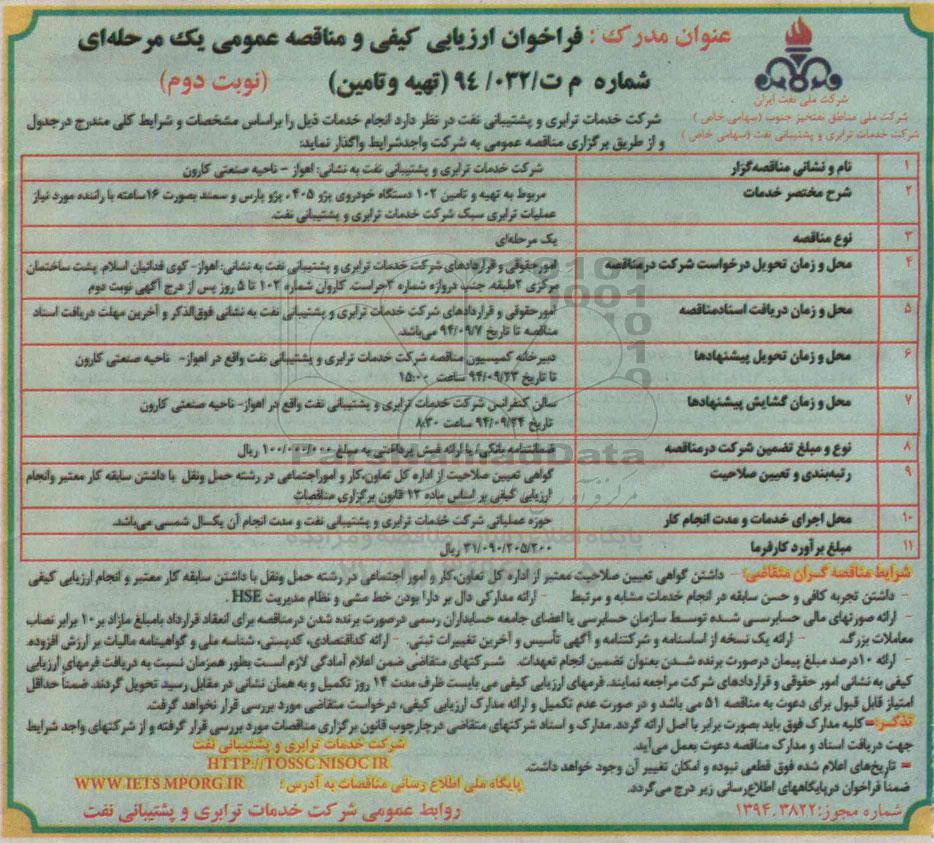 عنوان مدرک : فراخوان ارزیابی کیفی و مناقصه عمومی یک مرحله‌ای
شماره م ت/۰۳۲/ ۹۴ (تهیه و تامین) (نوبت دوم)
شرکت ملی نفت ایران
شرکت ملی مناطق نفتخیز جنوب (سهامی خاص)
شرکت خدمات ترابری و پشتیبانی نفت (سهامی خاص)
شرکت خدمات ترابری و پشتیبانی نفت در نظر دارد انجام خدمات ذیل را براساس مشخصات و شرایط کلی مندرج درجدول
و از طریق برگزاری مناقصه عمومی به شرکت واجدشرایط واگذار نماید:
۱ نام و نشانی مناقصه‌گزار شرکت خدمات ترابری و پشتیبانی نفت به نشانی: اهواز - ناحیه صنعتی کارون
۲ شرح مختصر خدمات مربوط به تهیه و تامین ۱۰۲ دستگاه خودروی پژو ۴۰۵، پژو پارس و سمند بصورت ۱۶ساعته با راننده مورد نیاز
عملیات ترابری سبک شرکت خدمات ترابری و پشتیبانی نفت.
۳ نوع مناقصه یک مرحله‌ای
۴ محل و زمان تحویل درخواست شرکت درمناقصه امورحقوقی و قراردادهای شرکت خدمات ترابری و پشتیبانی نفت به نشانی: اهواز- کوی فدائیان اسلام، پشت ساختمان
مرکزی ۲طبقه، جنب دروازه شماره ۳حراست، کاروان شماره ۱۰۲ تا ۵ روز پس از درج آگهی نوبت دوم
۵ محل و زمان دریافت اسنادمناقصه امورحقوقی و قراردادهای شرکت خدمات ترابری و پشتیبانی نفت به نشانی فوق‌الذکر و آخرین مهلت دریافت اسناد
مناقصه تا تاریخ ۹۴/۰۹/۷ می‌باشد.
۶ محل و زمان تحویل پیشنهادها دبیرخانه کمیسیون مناقصه شرکت خدمات ترابری و پشتیبانی نفت واقع در اهواز- ناحیه صنعتی کارون
تا تاریخ ۹۴/۰۹/۲۳ ساعت ۱۵:۰۰
۷ محل و زمان گشایش پیشنهادها سالن کنفرانس شرکت خدمات ترابری و پشتیبانی نفت واقع در اهواز- ناحیه صنعتی کارون
تاریخ ۹۴/۰۹/۲۴ ساعت ۸:۳۰
۸ نوع و مبلغ تضمین شرکت درمناقصه ضمانتنامه بانکی/ یا ارائه فیش پرداختی به مبلغ ۱۰۰/۰۰۰/۰۰۰ ریال
۹ رتبه‌بندی و تعیین صلاحیت گواهی تعیین صلاحیت از اداره کل تعاون،کار و اموراجتماعی در رشته حمل ونقل با داشتن سابقه کار معتبر وانجام
ارزیابی کیفی بر اساس ماده ۱۲ قانون برگزاری مناقصات
۱۰ محل اجرای خدمات و مدت انجام کار حوزه عملیاتی شرکت خدمات ترابری و پشتیبانی نفت و مدت انجام آن یکسال شمسی می‌باشد.
۱۱ مبلغ برآورد کارفرما ۳۱/۰۹۰/۲۰۵/۲۰۰ ریال
شرایط مناقصه گران متقاضی: - داشتن گواهی تعیین صلاحیت معتبر از اداره کل تعاون،کار و امور اجتماعی در رشته حمل ونقل با داشتن سابقه کار معتبر و انجام ارزیابی کیفی
- داشتن تجربه کافی و حسن سابقه در انجام خدمات مشابه و مرتبط - ارائه مدارکی دال بر دارا بودن خط مشی و نظام مدیریت HSE .
- ارائه صورتهای مالی حسابرسی شده توسط سازمان حسابرسی یا اعضای جامعه حسابداران رسمی درصورت برنده شدن درمناقصه برای انعقاد قرارداد بامبلغ مازاد بر۱۰ برابر نصاب
معاملات بزرگ. - ارائه یک نسخه از اساسنامه و شرکتنامه و آگهی تأسیس و آخرین تغییرات ثبتی. - ارائه کداقتصادی، کدپستی، شناسه ملی و گواهینامه مالیات بر ارزش افزوده.
- ارائه ۱۰درصد مبلغ پیمان درصورت برنده شدن بعنوان تضمین انجام تعهدات. شرکتهای متقاضی ضمن اعلام آمادگی لازم است بطور همزمان نسبت به دریافت فرمهای ارزیابی
کیفی به نشانی امور حقوقی و قراردادهای شرکت مراجعه نمایند. فرمهای ارزیابی کیفی می بایست ظرف مدت ۱۴ روز تکمیل و به همان نشانی در مقابل رسید تحویل گردند. ضمنا حداقل
امتیاز قابل قبول برای دعوت به مناقصه ۵۱ می باشد و در صورت عدم تکمیل و ارائه مدارک ارزیابی کیفی، درخواست متقاضی مورد بررسی قرار نخواهد گرفت.
تذکر:=کلیه مدارک فوق باید بصورت برابر با اصل ارائه گردد. مدارک و اسناد شرکتهای متقاضی درچارچوب قانون برگزاری مناقصات مورد بررسی قرار گرفته و از شرکتهای واجد شرایط
جهت دریافت اسناد و مدارک مناقصه دعوت بعمل می‌آید.
= تاریخ‌های اعلام شده فوق قطعی نبوده و امکان تغییر آن وجود خواهد داشت.
ضمنا فراخوان درپایگاههای اطلاع‌رسانی زیر درج می‌گردد.
شرکت خدمات ترابری و پشتیبانی نفت
HTTP://TOSSC.NISOC.IR
پایگاه ملی اطلاع رسانی مناقصات به آدرس: WWW.IETS.MPORG.IR
شماره مجوز: ۱۳۹۴.۳۸۲۲ روابط عمومی شرکت خدمات ترابری و پشتیبانی نفت